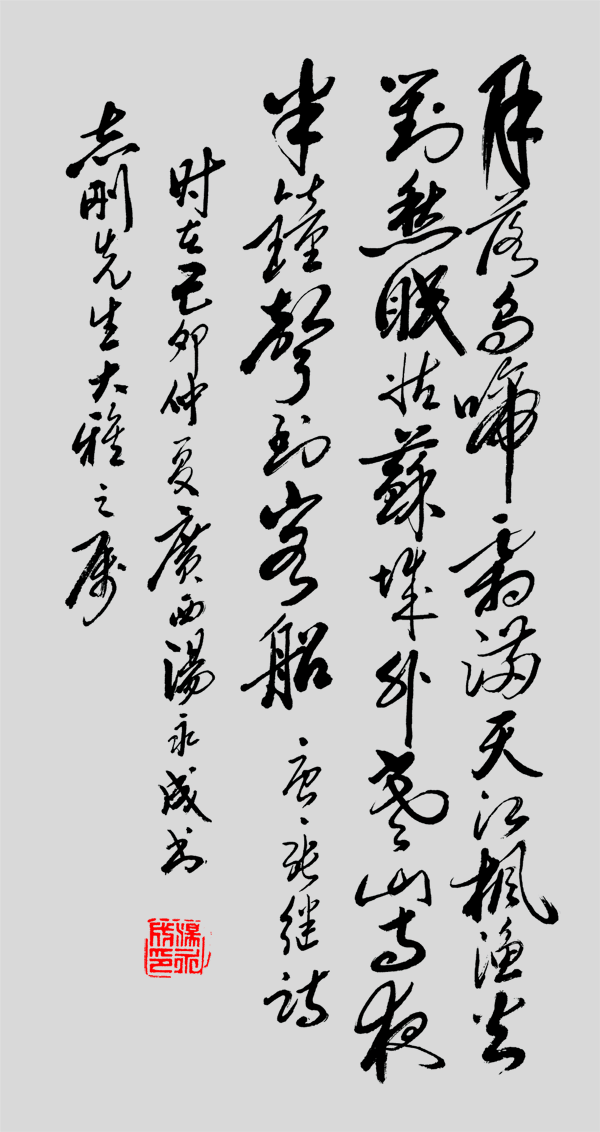 月落烏啼霜满天江楓渔火
對愁眠姑蘇城外寒山寺夜
半鐘聲到客船 唐张继诗
时在己卯仲夏廣西湯永成书
志刚先生大雅之属
湯永成印